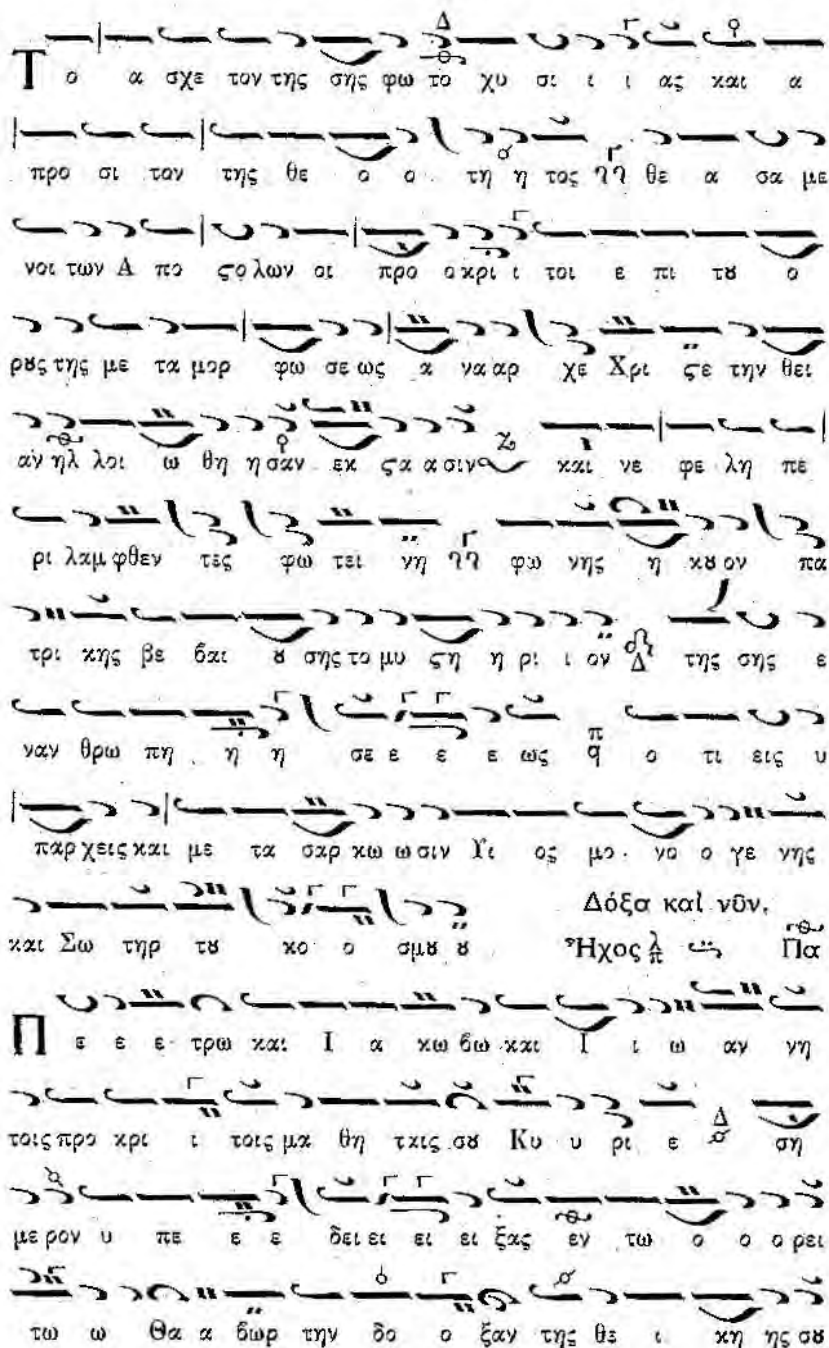 Το α σχε τον της σης φω το χυ σι ι ι ας και α
προ σι τον της θε ο ο τη η τος θε α σα με
νοι των Α πο ϛο λων οι προ ο κρι ι τοι ε πι τȣ ο
ρȣς της με τα μορ φω σε ως α να αρ χε Χρι ϛε την θει
αν ηλ λοι ω θη η σαν εκ ϛα α σιν και νε φε λη πε
ρι λαμ φθεν τες φω τει νη φω νης η κȣ ον πα
τρι κης βε βαι ȣ σης το μυ ϛη η ρι ι ον Δ της σης ε
ναν θρω πη η η σε ε ε ε ως ο τι εις υ
παρ χεις και με τα σαρ κω ω σιν Υι ος μο νο ο γε νης
και Σω τηρ τȣ κο ο σμȣ ȣ Δόξα καὶ νῦν,
Ἦχος λ π Πα
Πε ε ε τρω και Ι α κω βω και Ι ι ω αν νη
τοις προ κρι ι τοις μα θη ταις σȣ Κυ υ ρι ε Δ ση
με ρον υ πε ε ε δει ει ει ει ξας εν τω ο ο ο ρει
τω ω Θα α βωρ την δο ο ξαν της θε ι κη ης σȣ